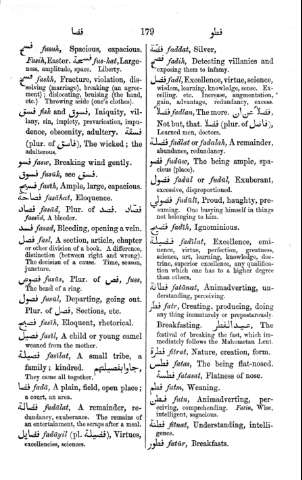 فضا
179
فطو
فسيح fasih, Spacious, expacious.
Fusih, Easter. fus-hat, Large-
ness, amplitude, space. Liberty.
فسخ faskh, Fracture, violation, dis-
solving (marriage), breaking (an agree-
ment) dislocating, bruising (the hand,
etc.) Throwing aside (one's clothes).
فسق fisk and فسوق, Iniquity, vil-
lany, sin, impiety, prevarication, impu-
dence, obscenity, adultery. فسقة
(plur. of فاسق), The wicked; the
adulterous.
فسو fasw, Breaking wind gently.
فسوق fasúk, see فسق.
فسيح fasih, Ample, large, capacious.
فصاحة fasáhat, Eloquence.
فصاد fasád, Plur. of فصد. فصّاد
fassád, A bleeder.
فصد fasad, Bleeding, opening a vein.
فصل fasl, A section, article, chapter
or other division of a book. A difference,
distinction (between right and wrong).
The decision of a cause. Time, season,
juncture.
فصوص fusús, Plur. of فص, fuss,
The bezel of a ring.
فصول fusul, Departing, going out.
Plur. of فصل, Sections, etc.
فصيح fasih, Eloquent, rhetorical.
فصيل fasil, A child or young camel
weaned from the mother.
فصيلة fasilat, A small tribe, a
family; kindred. جاوا بفصيلتهم,
They came all together.
فضا fadá, A plain, field, open place;
a court, an area.
فضالة fudálat, A remainder, re-
dundancy, exuberance. The remains of
an entertainment, the scraps after a meal.
فضايل fadáyil (pl. فضيلة), Virtues,
excellencies, sciences.
فضة faddat, Silver,
فضح fadih, Detecting villanies and
exposing them to infamy.
فضل fadl, Excellence, virtue, science,
wisdom, learning, knowledge, sense. Ex-
celling, etc. Increase, augmentation,
gain, advantage, redundancy, excess.
فضلا fadlan, The more. فضلا عن ان,
Not but, that. فضلا (plur. of فاضل),
Learned men, doctors.
فضلة fudlat or fadalah, A remainder,
abundance, redundancy.
فضو fadúw, The being ample, spa-
cious (place).
فضول fuzúl or fudúl, Exuberant,
excessive, disproportioned.
فضولي fudúli, Proud, haughty, pre-
suming. One burying himself in things
not belonging to him.
فضيح fadih, Ignominious.
فضيلة fadilat, Excellence, emi-
nence, virtue, perfection, greatness,
science, art, learning, knowledge, doc-
trine, superior excellence, any qualifica-
tion which one has to a higher degree
than others.
فطانة fatánat, Animadverting, un-
derstanding, perceiving.
فطر fatr, Creating, producing, doing
any thing immaturely or preposterously.
Breakfasting. عيد الفطر, The
festival of breaking the fast, which im-
mediately follows the Mahometan Lent.
فطرة fitrat, Nature, creation, form.
فطس fatas, The being flat-nosed.
فطسة fatasat, Flatness of nose.
فطم fatm, Weaning.
فطن fatn, Animadverting, per-
ceiving, comprehending. Fatin, Wise,
intelligent, sagacious.
فطنة fitnat, Understanding, intelli-
gence.
فطور fatúr, Breakfasts.